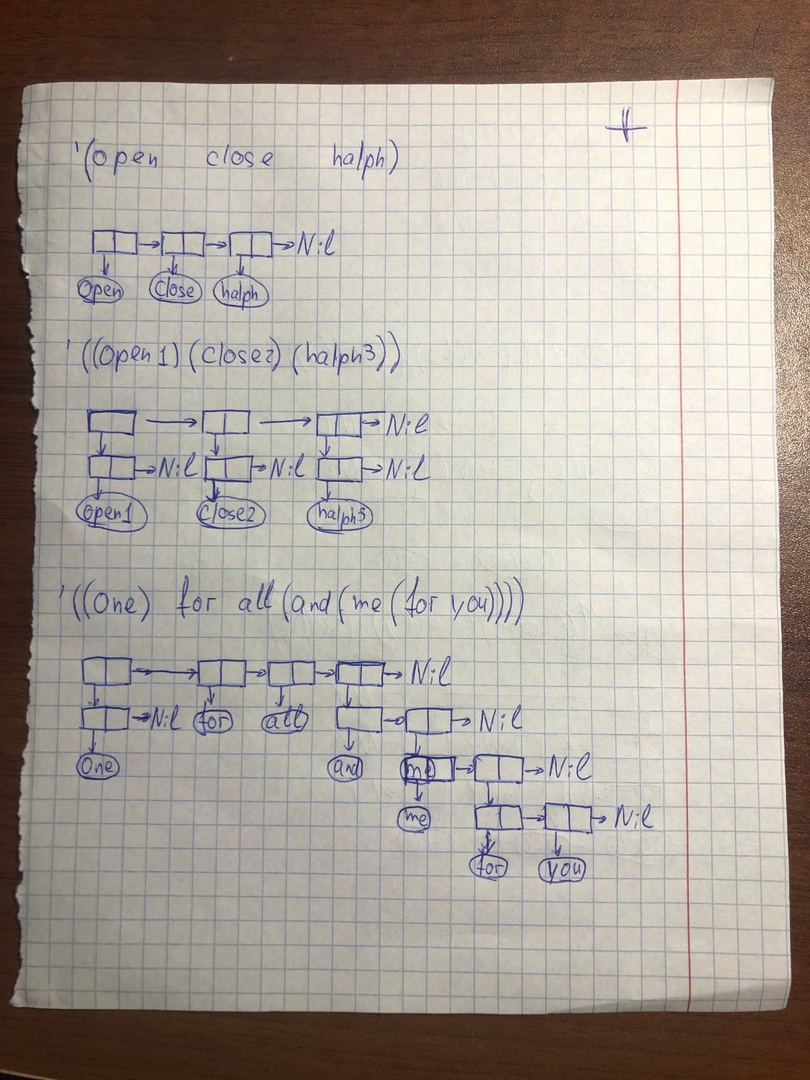 '(open close halph)
Nil
open close halph
'((open1) (close2) (halph3))
Nil
Nil Nil Nil
open1 close2 halph3
'((One) for all (and (me (for you))))
Nil
Nil for all Nil
One and me Nil
me Nil
for you